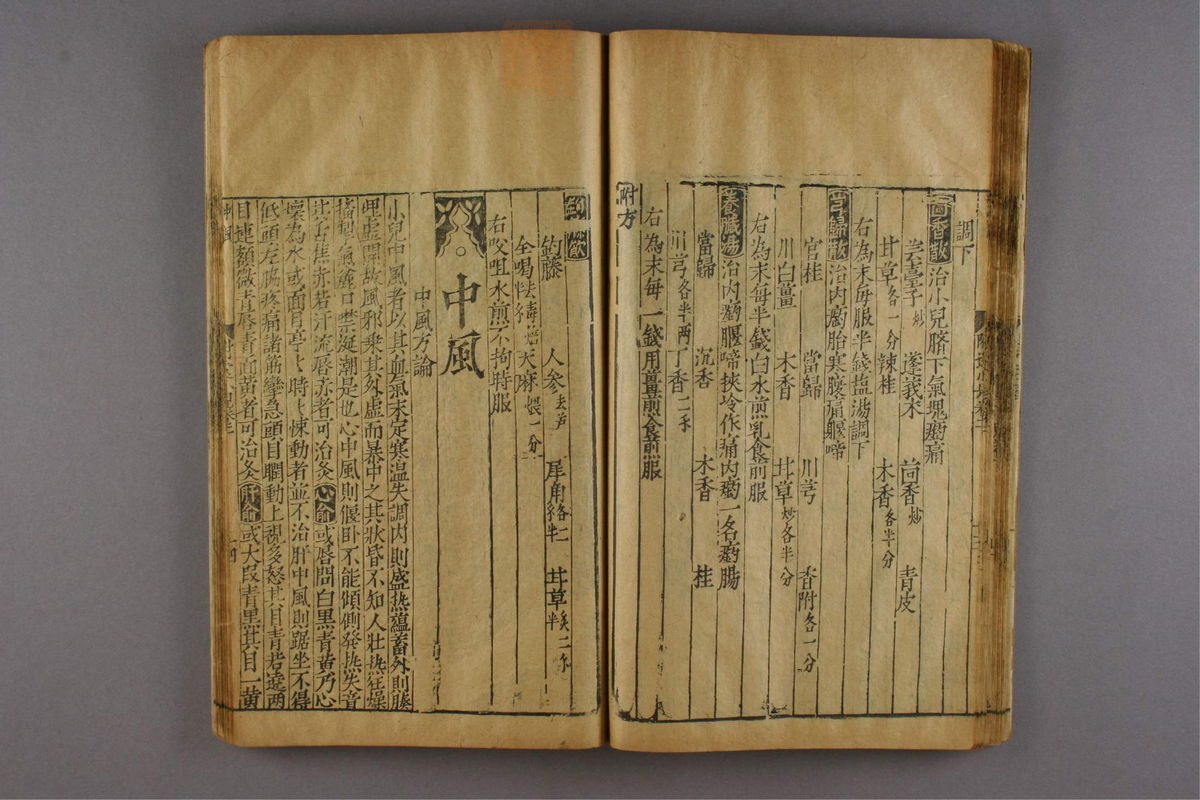 調下
茴香散治小兒臍下氣塊𤻤痛
芸臺子炒 蓬莪术 茴香炒 青皮
甘草各一分辣桂 木香各半分
右為末每服半錢塩湯調下
芎歸散治内𤻤胎寒腹痛軀啼
官桂 當歸 川芎 香附各一分
川白薑 木香 甘草炒各半分
右為末每半錢白水煎乳食前服
養臟湯治内𤻤躽啼挾冷作痛内𤻤一名𤻤腸
當歸 沉香 木香 桂
川芎各半兩丁香二分
右為末每一錢用薑煎食前服
附方
釣藤飲
釣藤 人參去芦 犀角 甘草
全蝎 天麻煨一分
右㕮咀水煎不拘時服
中風
中風方論
小兒中風者以其血氣未定寒温失調内則盛热藴蓄外則腠
理虚開故風邪乗其外虚而暴中之其狀昏不知人壮热狂燥
口噤涎潮是也心中風則偃卧不能傾側發热失音
若汗流唇赤者可治灸心俞或唇間白黒青黄乃心
壞為水或面目 時 悚動者並不治肝中風則踞坐不得
低頭左脇疼痛諸筋攣急頭目瞤動上視多怒其目青若遶兩
目連額微青唇青面黄者可治灸肝俞或大叚青黒其目一黄